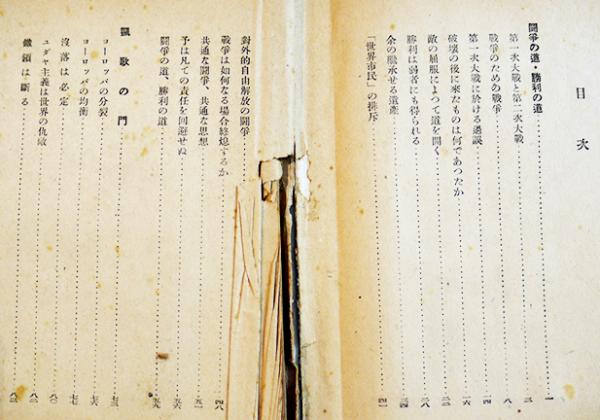 目次
闘爭の道・勝利の道
第一次大戰と第二次大戰
戰爭のための戰爭
第一次大戰に於ける過誤
破壞の後に來たものは何であつたか
敵の屈服によつて道を開く
勝利は弱者にも得られる
余の繼承せる遺產
「世界市民」の排斥
對外的自由解放の闘爭
戰爭は如何なる場合終熄するか
共通な闘爭、共通な思想
予は凡ての責任を回避せぬ
闘爭の道、勝利の道
凱歌の門
ヨーロッパの分裂
ヨーロッパの均衡
沒落は必定
ユダヤ主義は世界の仇敵
鐵鎖は斷る